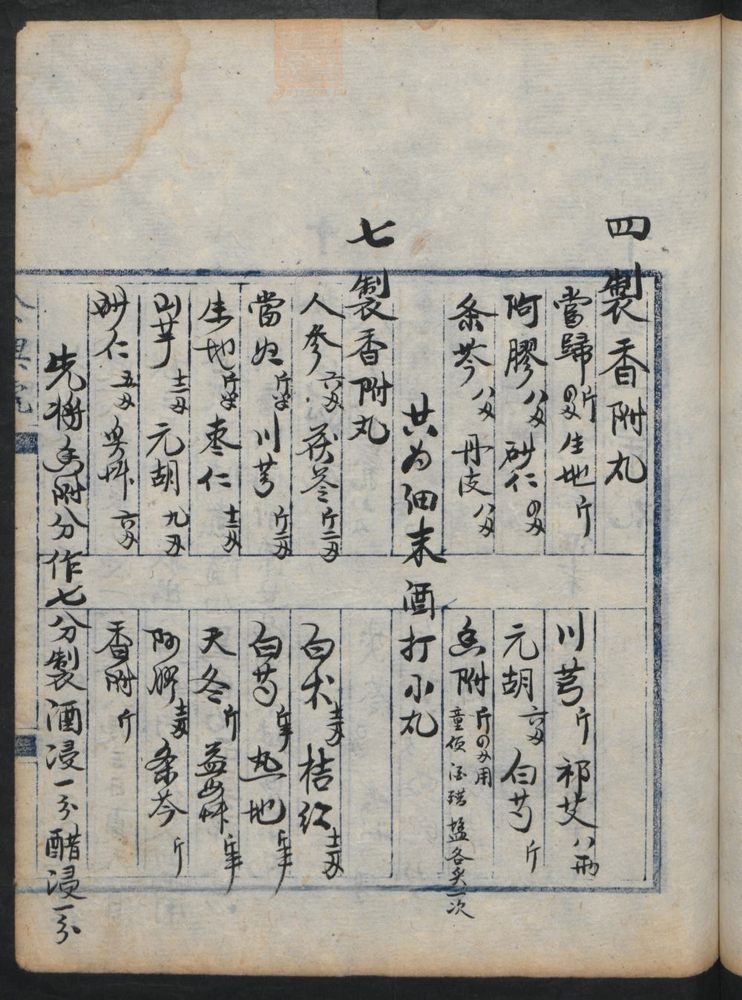 四製香附丸
當歸 斤 四両 生地 斤 川芎 斤 祁艾 八両
阿膠 八両 砂仁 四両 元胡 六両 白芍 斤
条芩 八両 丹皮 八両 香附 斤四両用 童便 酒 醋 塩各炙一次
共为细末酒打小丸
七製香附丸
人參 六両 茯苓 斤二両 白朮 桔红 十二両
當归 斤半 川芎 斤二両 白芍 斤半 熟地 斤半
生地 斤半 枣仁 十二両 天冬 斤 益母草 斤半
山芋 十二両 元胡 九両 阿膠 十二両 条芩 斤
砂仁 五両 吳草 六両 香附 斤
先将香附分作七分製酒浸一分醋浸一分